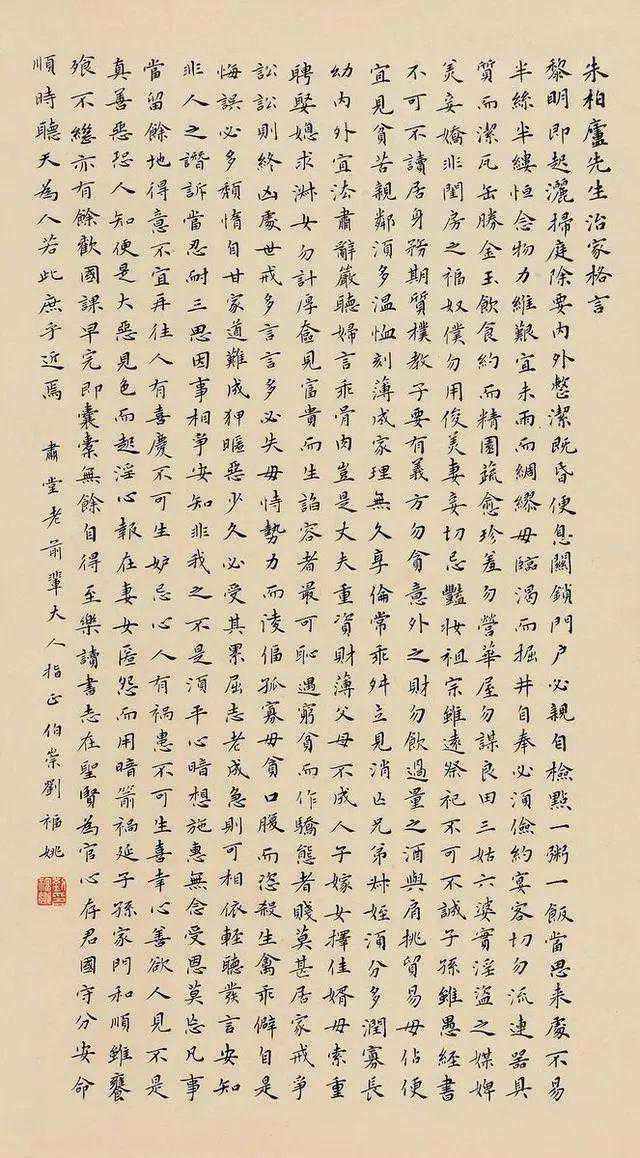 朱柏廬先生治家格言
黎明即起灑掃庭除要內外整潔既昏便息關鎖門戶必親自檢點一粥一飯當思來處不易
半絲半縷恒念物力維艱宜未雨而綢繆毋臨渴而掘井自奉必須儉約宴客切勿流連器具
質而潔瓦缶勝金玉飲食約而精園蔬愈珍羞勿營華屋勿謀良田三姑六婆實淫盜之媒婢
美妾嬌非閨房之福奴僕勿用俊美妻妾切忌豔妝祖宗雖遠祭祀不可不誠子孫雖愚經書
不可不讀居身務期質樸教子要有義方勿貪意外之財勿飲過量之酒與肩挑貿易毋佔便
宜見貧苦親鄰須多溫恤刻薄成家理無久享倫常乖舛立見消亡兄弟叔姪須分多潤寡長
幼內外宜法肅辭嚴聽婦言乖骨肉豈是丈夫重資財薄父母不成人子嫁女擇佳婿毋索重
聘娶媳求淑女勿計厚奩見富貴而生諂容者最可恥遇窮貧而作驕態者賤莫甚居家戒爭
訟訟則終凶處世戒多言言多必失毋恃勢力而淩偪孤寡毋貪口腹而恣殺生禽乖僻自是
悔誤必多頹惰自甘家道難成狎暱惡少久必受其累屈志老成急則可相依輕聽發言安知
非人之譖訴當忍耐三思因事相爭安知非我之不是須平心暗想施惠無念受恩莫忘凡事
當留餘地得意不宜再往人有喜慶不可生妒忌心人有禍患不可生喜幸心善欲人見不是
真善惡恐人知便是大惡見色而起淫心報在妻女匿怨而用暗箭禍延子孫家門和順雖饔
飧不繼亦有餘歡國課早完即囊橐無餘自得至樂讀書志在聖賢為官心存君國守分安命
順時聽天為人若此庶乎近焉 肅堂老前輩大人指正伯崇劉福姚